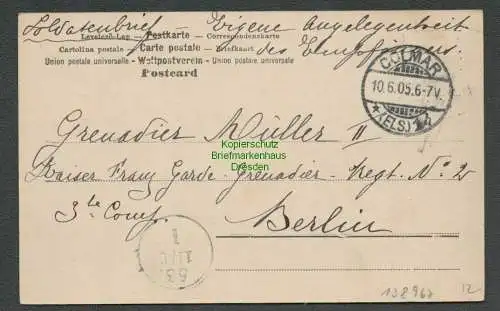 Soldatenbrief – Eigene Angelegenheit
des Empfängers.
Levelező-Lap — Postkarte — Correspondenzkarte
Cartolina postale — Carte postale — Dopisnice
Union postale universelle — Weltpostverein — Union postale universelle
Postcard
COLMAR
10.6.05.6-7V.
(ELS.)
Grenadier Müller II
Kaiser Franz Garde-Grenadier-Regt. No. 2
3te Comp.
Berlin
Kopierschutz
Briefmarkenhaus
Dresden
138967
12